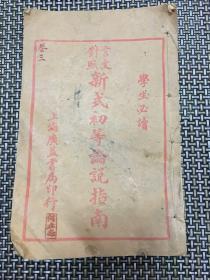 學生必讀
言文對照
新式初等論說指南
上海廣益書局印行
卷三